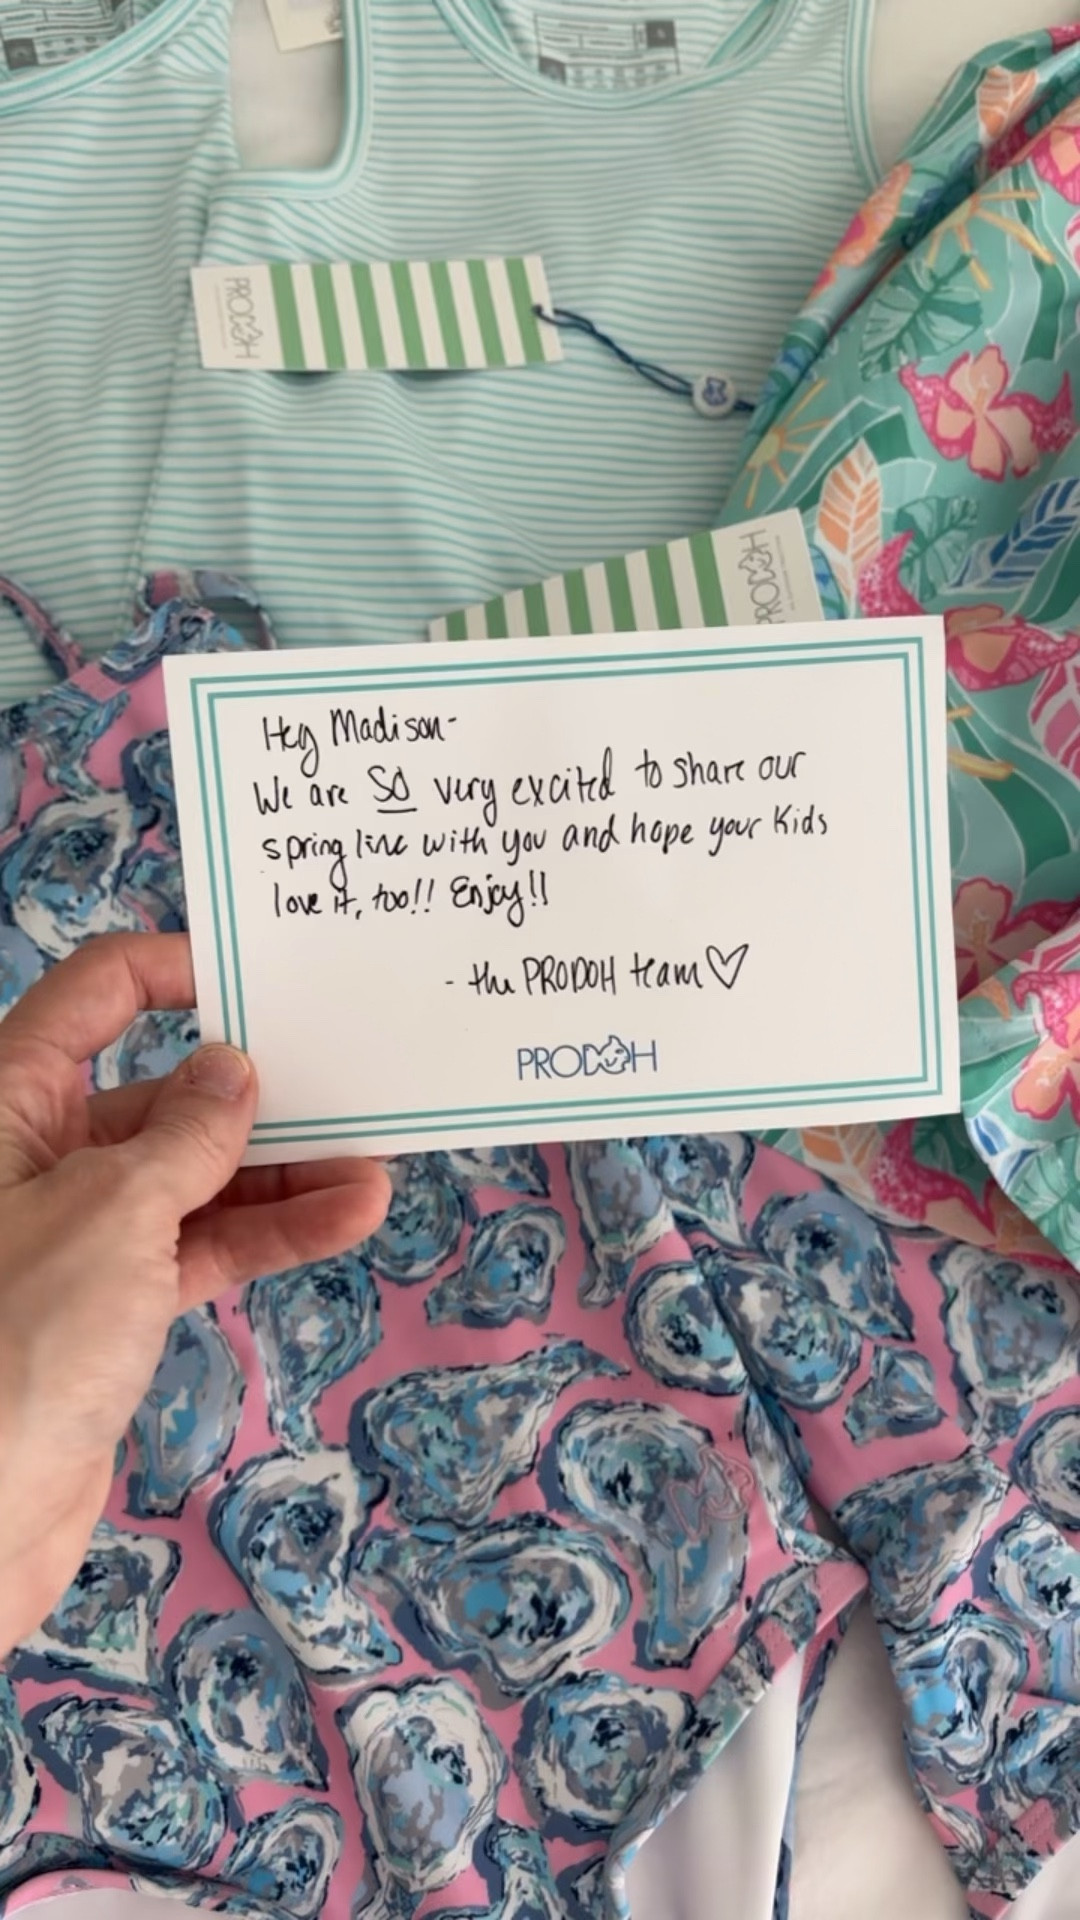 PRODOH
PRODOH
Hey Madison-
We are SO very excited to share our
spring line with you and hope your kids
love it, too!! Enjoy!!
- the PRODOH team ♡
PRODOH